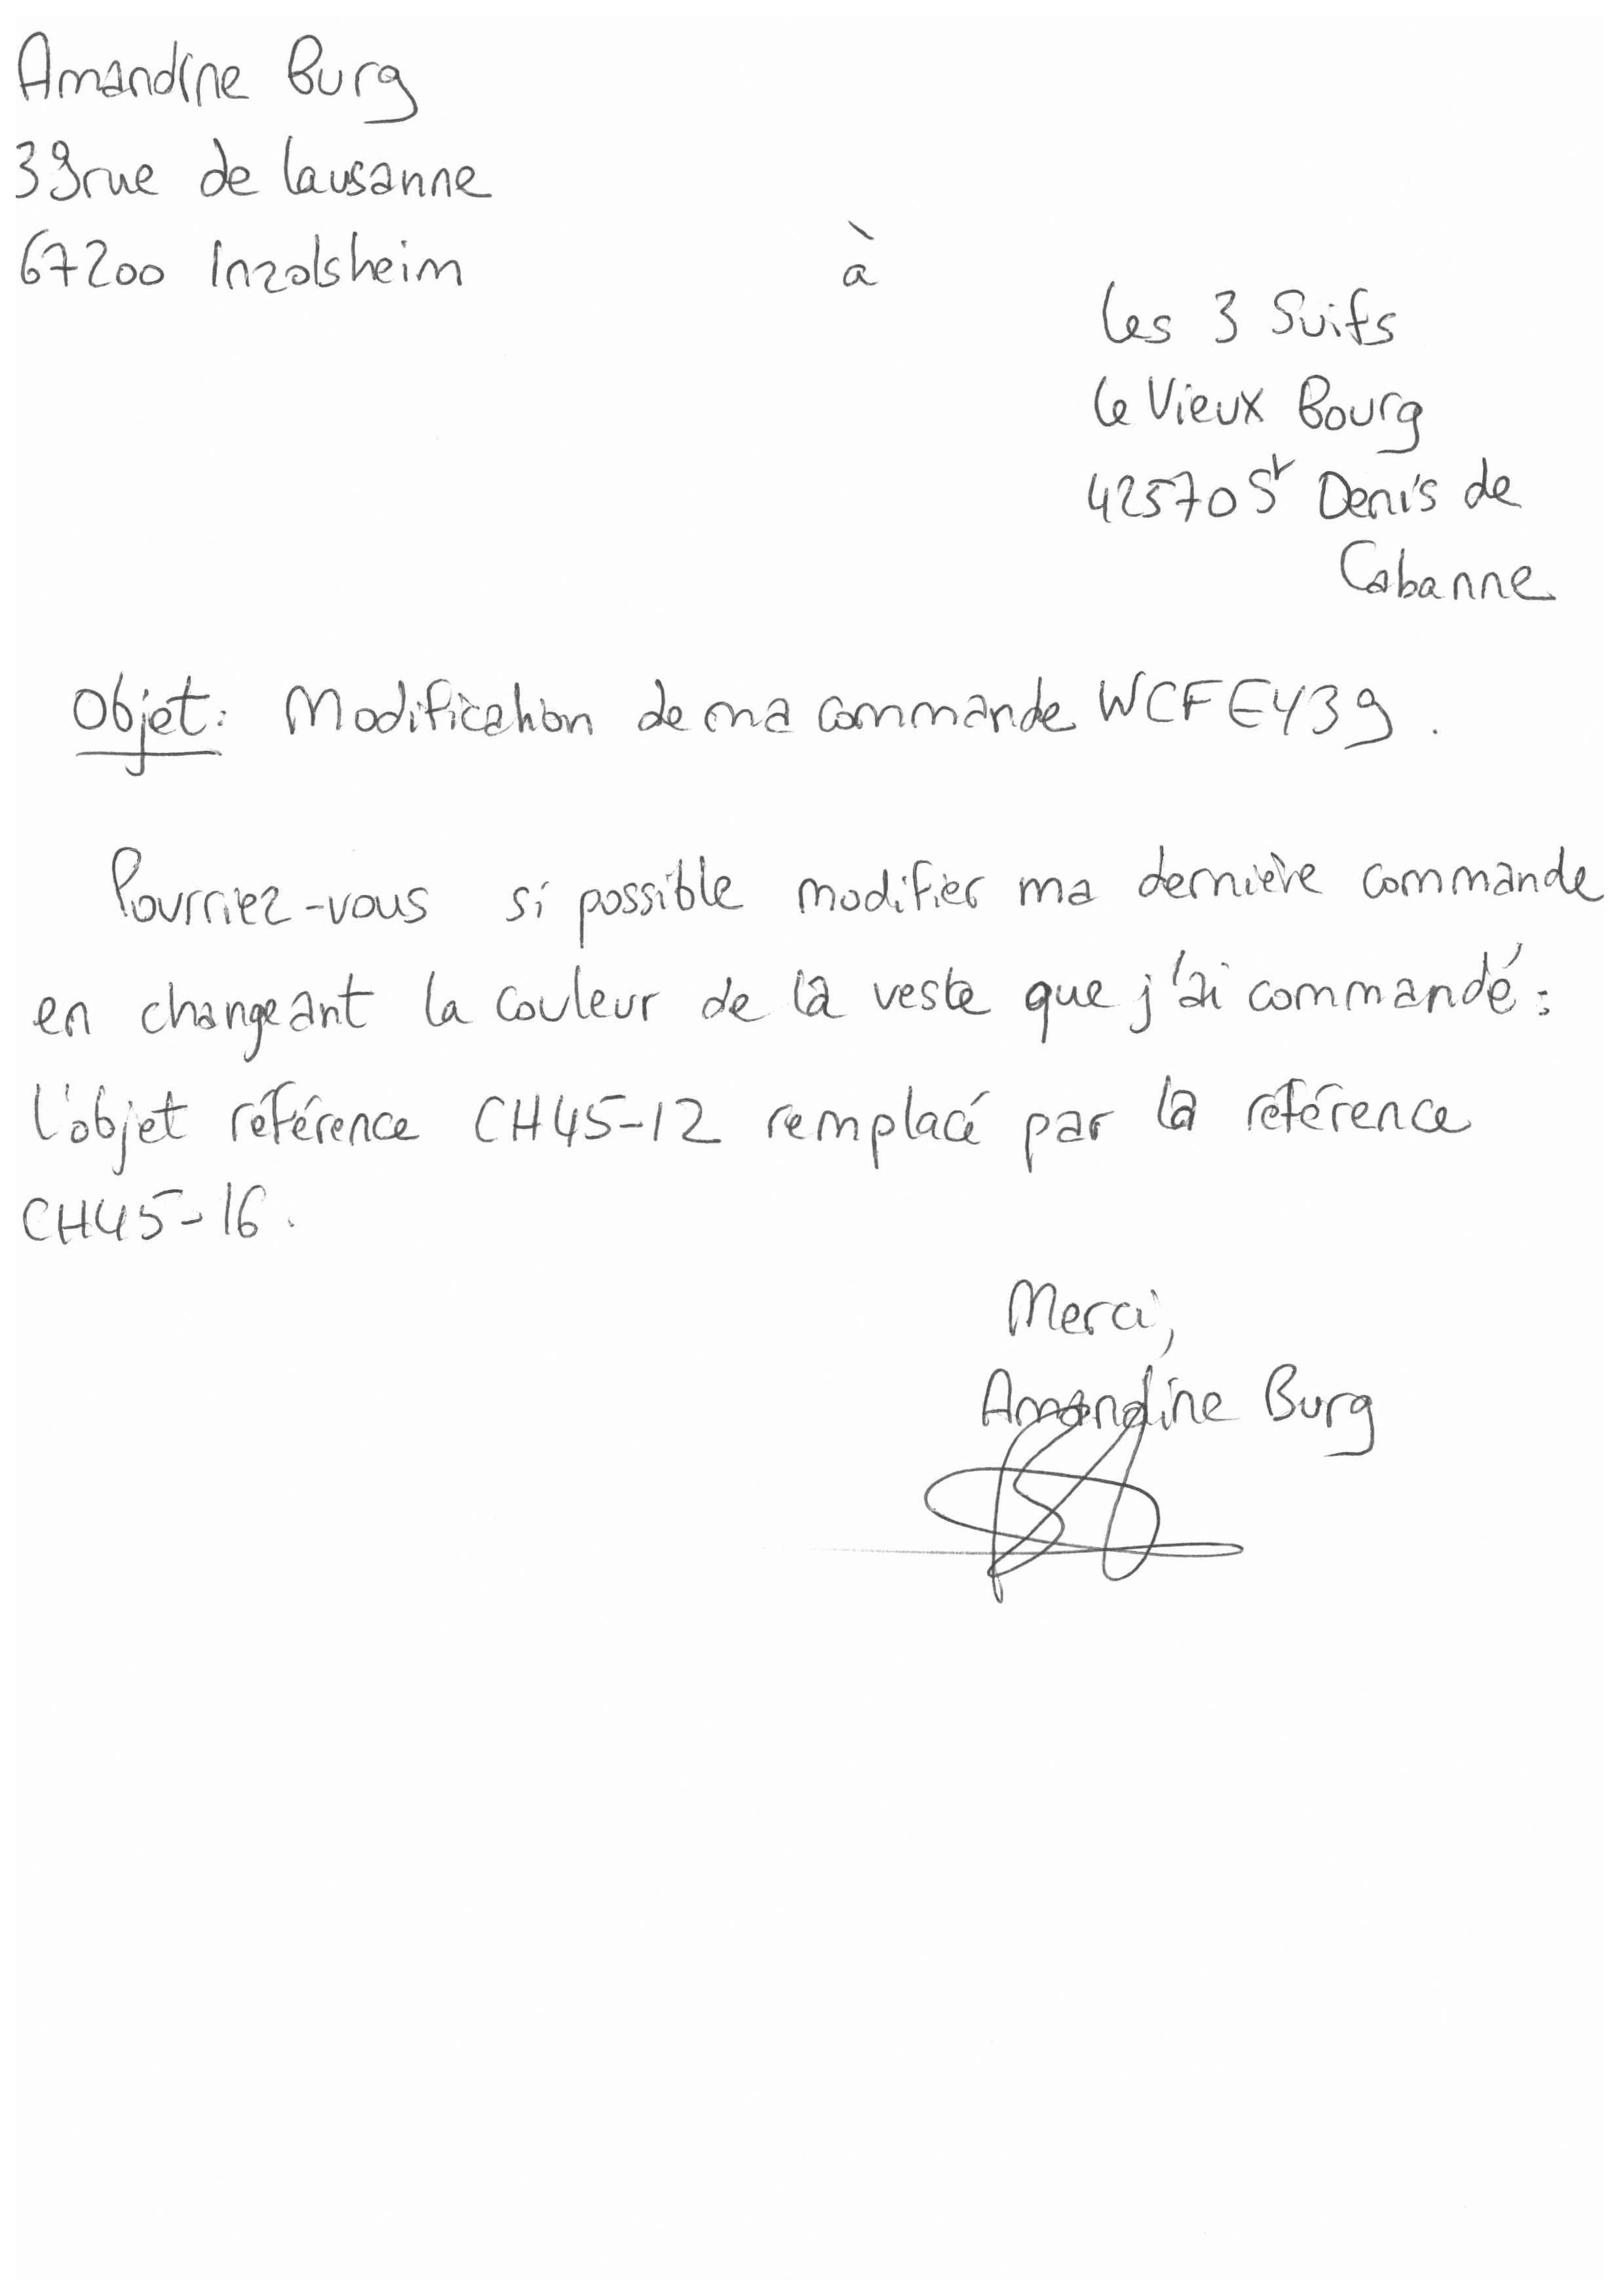 Amandine Burg
39 rue de Lausanne
67200 Inzolsheim
à
Les 3 Suifs
Le Vieux Bourg
42570 St Denis de
Cabanne
Objet: Modification de ma commande WCFEY39.
Pourriez-vous si possible modifier ma dernière commande
en changeant la couleur de la veste que j'ai commandé:
l'objet référence CH45-12 remplacé par la référence
CH45-16.
Merci,
Amandine Burg